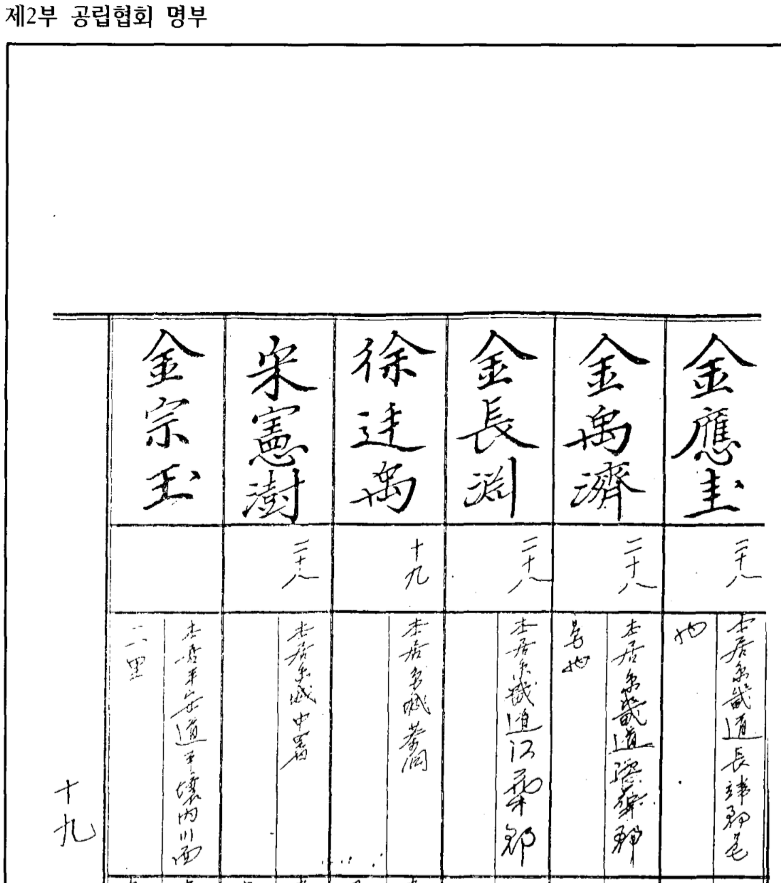 제2부 공립협회 명부
金應圭
二十八
本居京畿道長湍郡邑
地
金禹濟
二十八
本居京畿道積城郡
邑地
金長淵
二十八
本居京畿道江華郡
徐達禹
十九
本居京城茶洞
宋憲澍
二十八
本居京城中署
金宗玉
本居平安道平壤内川面
二里
十九